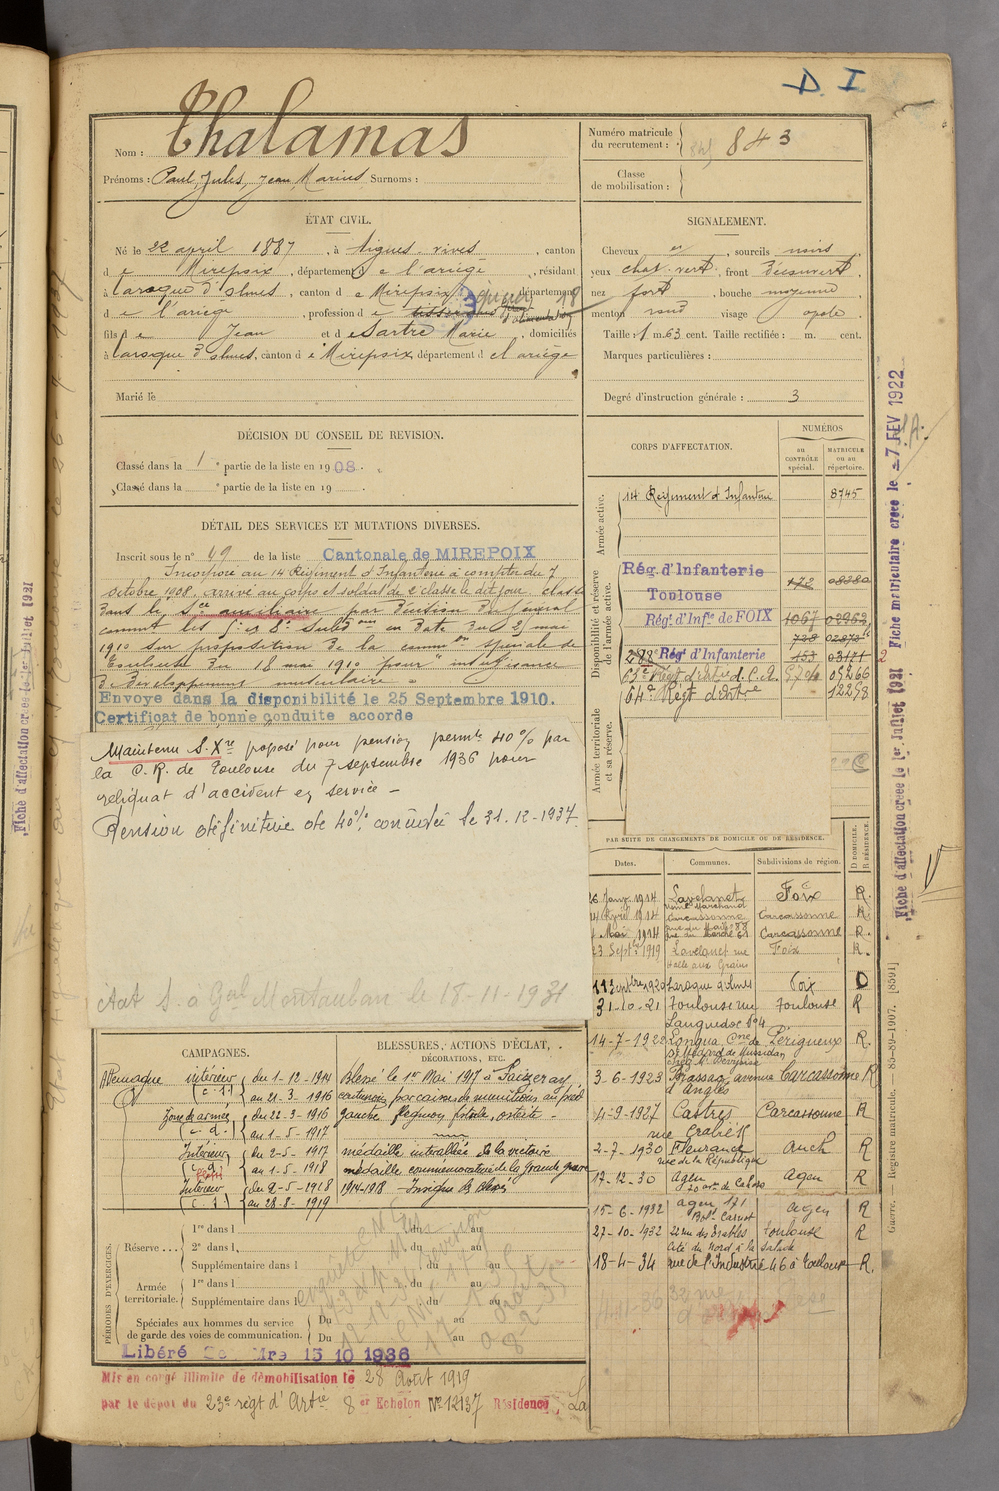 D. I
Nom : Thalamas
Prénoms : Paul, Jules, Jean, Marius Surnoms :
Numéro matricule du recrutement : 843
Classe de mobilisation :
ÉTAT CIVIL.
Né le 22 april 1887, à Aigues-vives, canton
de Mirepoix, département de l'ariège, résidant
à laroque d'olmes, canton de Mirepoix, département
de l'ariège, profession de tisserand
fils de Jean et de Sartre Marie, domiciliés
à laroque d'olmes, canton de Mirepoix, département de l'ariège
Marié le
SIGNALEMENT.
Cheveux, sourcils noirs
yeux chat. vert, front découvert,
nez fort, bouche moyenne,
menton rond visage ovale.
Taille : 1 m. 63 cent. Taille rectifiée : m. cent.
Marques particulières :
Degré d'instruction générale : 3
DÉCISION DU CONSEIL DE REVISION.
Classé dans la 1e partie de la liste en 1908.
Classé dans la e partie de la liste en 19
DÉTAIL DES SERVICES ET MUTATIONS DIVERSES.
Inscrit sous le n° 49 de la liste Cantonale de MIREPOIX
Incorporé au 14 Régiment d'Infanterie à compter du 7
octobre 1908, arrivé au corps et soldat de 2 classe le dit jour, classé
dans le Sce auxiliaire par décision du Général
commt les 5 et 8 Subdons en date du 25 mai
1910 sur proposition de la common spéciale de
Toulouse du 18 mai 1910 pour "insuffisance
de développement musculaire"
Envoye dans la disponibilité le 25 Septembre 1910.
Certificat de bonne conduite accorde
Maintenu S. Xre proposé pour pension permte 40% par
la C. R. de Toulouse du 7 septembre 1936 pour
reliquat d'accident en service -
Pension définitive de 40% concédée le 31.12-1937
état S. à Gal Montauban le 18-11-1931
CORPS D'AFFECTATION.
NUMÉROS
au CONTRÔLE spécial.
MATRICULE ou au répertoire.
Armée active.
14 Régiment d'Infanterie 8745
Disponibilité et réserve de l'armée active.
Rég. d'Infanterie
Toulouse 172
Régt. d'Infie de FOIX 1067 02962
738
288 Régt d'Infanterie 153 03171
64e Régt d'Artre 12258
Armée territoriale et sa réserve.
PAR SUITE DE CHANGEMENTS DE DOMICILE OU DE RÉSIDENCE.
Dates. Communes. Subdivisions de région. D DOMICILE. R RÉSIDENCE.
26 Janv. 1914 Lavelanet Foix R.
14 Avril 1914 Carcassonne Carcassonne R.
Mai 1914 rue du Marché 61 Carcassonne R.
23 Sept. 1919 Lavelanet rue Foix R.
halle aux Grains
1920 Laroque d'olmes Foix D
31-10-21 Toulouse rue Toulouse R
Languedoc No 4
14-7-1922 Longua Cne de Périgueux R.
St Médard de Mussidan
3-6-1923 Brassac avenue Carcassonne R
d'Angles
4-9-1927 Castres Carcassonne R
2-7-1930 Fleurance Auch R
rue de la République
17-12-30 Agen Agen R
15-6-1932 agen 171 Agen R
Bd Carnot
27-10-1932 22 rue des Erables toulouse R
Cité du Nord à la Salade
18-4-34 rue de l'Industrie 46 à Toulouse R.
CAMPAGNES.
Allemagne intérieur (c.s.) du 1-12-1914
au 21-3-1916
Zone des armées (c.d.) du 22-3-1916
au 1-5-1917
Intérieur du 2-5-1917
au 1-5-1918
Intérieur (c.s.) du 2-5-1918
au 28-8-1919
BLESSURES, ACTIONS D'ÉCLAT, DÉCORATIONS, ETC.
Blessé le 1er Mai 1917 à Saizeray,
contusions par caisse de munitions au pied
gauche
médaille interalliée de la victoire
médaille commémorative de la Grande guerre
1914-1918 - Insigne des blessés
PÉRIODES D'EXERCICES.
Réserve ... 1re dans l du au
2e dans l du au
Supplémentaire dans l du au
Armée territoriale. 1re dans l du au
Supplémentaire dans l du au
Spéciales aux hommes du service de garde des voies de communication. Du au
Du au
Libéré Sce Mre 15 10 1936
Mis en congé illimité de démobilisation le 28 Août 1919
par le dépot du 23e régt d'Artie 8er Echelon No 12137 Résidence, La
Fiche d'affectation créée le 1er Juillet 1921
Fiche matriculaire créée le -7 FEV 1922
Fiche d'affectation créée le 1er Juillet 1921
Guerre. — Registre matricule. — 88-89-1907. [8591]